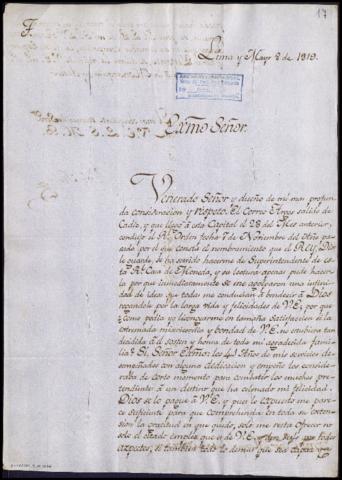 17
Lima y Mayo 8 de 1819.
Exmo Señor.
Venerado Señor y dueño de mi mas profun
da consideracion y respeto. El Correo salido de
Cadiz, y que llegó á esta Capital el 28 del Mes anterior,
condujo la Rl Orden fecha 7 de Noviembre del Año pa
sado por el que consta el nombramiento que el REY, Dios
le guarde, se ha servido hacerme de Superintendente de es
ta Rl Casa de Moneda, y su lectura apenas pude hacer
la por que inmediatamente se me agolparon una infini
dad de ideas que todas me conducian á bendecir á Dios
rogandole por la larga vida y felicidades de V.E, por que
como podia yo lisongearme en tamaña satisfaccion si la
extremada misericordia y bondad de V.E. no estubiera tan
decidida á el sosten y honra de mi agradecida fami
lia? Si, Señor Exmo: los 40 Años de mis servicios de
sempeñados con alguna dedicacion y empeño los conside
raba de corto momento para combatir los muchos pre
tendientes á un destino que ha colmado mi felicidad.
Dios se lo pague á V.E. y pues lo expuesto me pa
rece suficiente para que comprehenda en toda su exten
sion la gratitud en que quedo, solo me resta ofrecer no
solo el citado empleo que es de V.E. y muy suyo por todos
aspectos, si tambien todo lo demas que sea